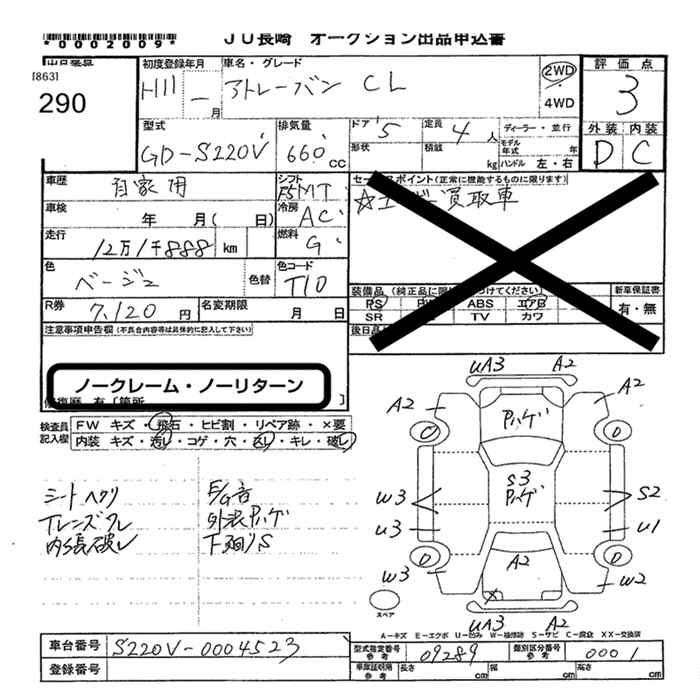 *0002009*
JU長崎 オークション出品申込書
[863]
290
初度登録年月
H11 年 一 月
車名・グレード
アトレーバン CL
2WD
4WD
評価点
3
外装 内装
D C
型式
GD-S220V
排気量
660 CC
ドア 5
形状
定員 4 人
積載 kg
ディーラー・並行
モデル年式 年
ハンドル 左・右
車歴
自家用
シフト
F5MT
車検
年 月( 日)
冷房
AC
走行
12万1千888 km
燃料
G
色
ベージュ
色替
色コード
T10
R券
7,120 円
名変期限
月 日
セールスポイント(正常に機能するものに限ります)
買取車
装備品(純正品に限
つけてください)
PS ABS エアB
SR TV カワ
新車保証書
有・無
後日品
注意事項申告欄(不具合内容等は具体的に記入して下さい)
ノークレーム・ノーリターン
修復歴 有〔箇所 〕
検査員記入欄
FW キズ・飛石・ヒビ割・リペア跡・×要
内装 キズ・汚れ・コゲ・穴・スレ・キレ・破れ
シートヘタリ
Tレンズワレ
内張破レ
F/G音
外装Pハゲ
下廻りS
uA3 A2
A2 A2
Pハゲ
C D
S3
Pハゲ
W3 S2
u3 u1
D D
A2
W3 W2
×
スペア
uA3 A2
A-キズ E-エクボ U-凹み W-補修跡 S-サビ C-腐食 XX-交換済
車台番号 S220V-0004523
登録番号
型式指定番号 参考 09289
類別区分番号 参考 0001
車庫証明用 参考 長さ cm 幅 cm 高さ cm